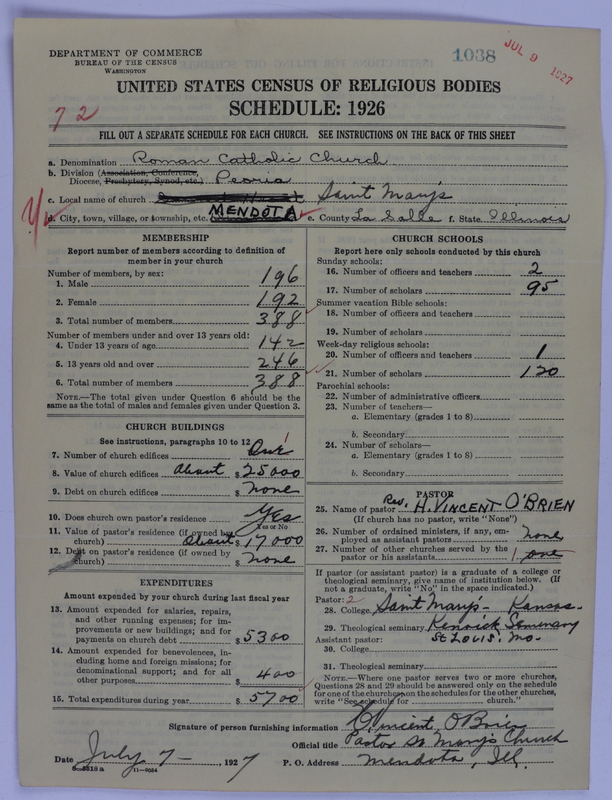 DEPARTMENT OF COMMERCE
BUREAU OF THE CENSUS
WASHINGTON
1038
JUL 9 1927
UNITED STATES CENSUS OF RELIGIOUS BODIES
SCHEDULE: 1926
72
FILL OUT A SEPARATE SCHEDULE FOR EACH CHURCH. SEE INSTRUCTIONS ON THE BACK OF THIS SHEET
a. Denomination Roman Catholic Church
b. Division (Association, Conference,
Diocese, Presbytery, Synod, etc.) Peoria
c. Local name of church Saint Mary's
d. City, town, village, or township, etc. MENDOTA e. County La Salle f. State Illinois
MEMBERSHIP
Report number of members according to definition of
member in your church
Number of members, by sex:
1. Male 196
2. Female 192
3. Total number of members 388
Number of members under and over 13 years old:
4. Under 13 years of age 142
5. 13 years old and over 246
6. Total number of members 388
NOTE.—The total given under Question 6 should be the
same as the total of males and females given under Question 3.
CHURCH BUILDINGS
See instructions, paragraphs 10 to 12
7. Number of church edifices One
8. Value of church edifices About $ 25000
9. Debt on church edifices $ none
10. Does church own pastor's residence Yes
Yes or No
11. Value of pastor's residence (if owned by
church) About $ 17000
12. Debt on pastor's residence (if owned by
church) $ none
EXPENDITURES
Amount expended by your church during last fiscal year
13. Amount expended for salaries, repairs,
and other running expenses; for im-
provements or new buildings; and for
payments on church debt $ 5300
14. Amount expended for benevolences, in-
cluding home and foreign missions; for
denominational support; and for all
other purposes $ 400
15. Total expenditures during year $ 5700
CHURCH SCHOOLS
Report here only schools conducted by this church
Sunday schools:
16. Number of officers and teachers 2
17. Number of scholars 95
Summer vacation Bible schools:
18. Number of officers and teachers
19. Number of scholars
Week-day religious schools:
20. Number of officers and teachers 1
21. Number of scholars 120
Parochial schools:
22. Number of administrative officers
23. Number of teachers—
a. Elementary (grades 1 to 8)
b. Secondary
24. Number of scholars—
a. Elementary (grades 1 to 8)
b. Secondary
PASTOR
25. Name of pastor Rev. H. VINCENT O'BRIEN
(If church has no pastor, write "None")
26. Number of ordained ministers, if any, em-
ployed as assistant pastors none
27. Number of other churches served by the
pastor or his assistants 1 one
If pastor (or assistant pastor) is a graduate of a college or
theological seminary, give name of institution below. (If
not a graduate, write "No" in the space indicated.)
Pastor: 2
28. College Saint Mary's - Kansas-
29. Theological seminary Kenrick Seminary
Assistant pastor: St Louis. Mo.
30. College
31. Theological seminary
NOTE.—Where one pastor serves two or more churches,
Questions 28 and 29 should be answered only on the schedule
for one of the churches; on the schedules for the other churches,
write "See schedule for church."
Signature of person furnishing information H Vincent O'Brien
Official title Pastor St Mary's Church
Date July 7- , 1927 P. O. Address Mendota, Ill.
11-9084